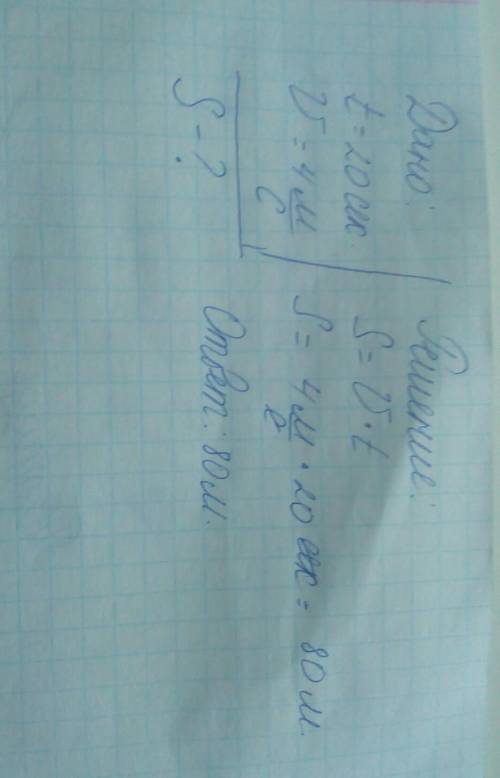 Дано:
t = 20 сек
V = 4 м/с
S - ?
Решение:
S = V · t
S = 4 м/с · 20 сек = 80 м.
Ответ: 80 м.